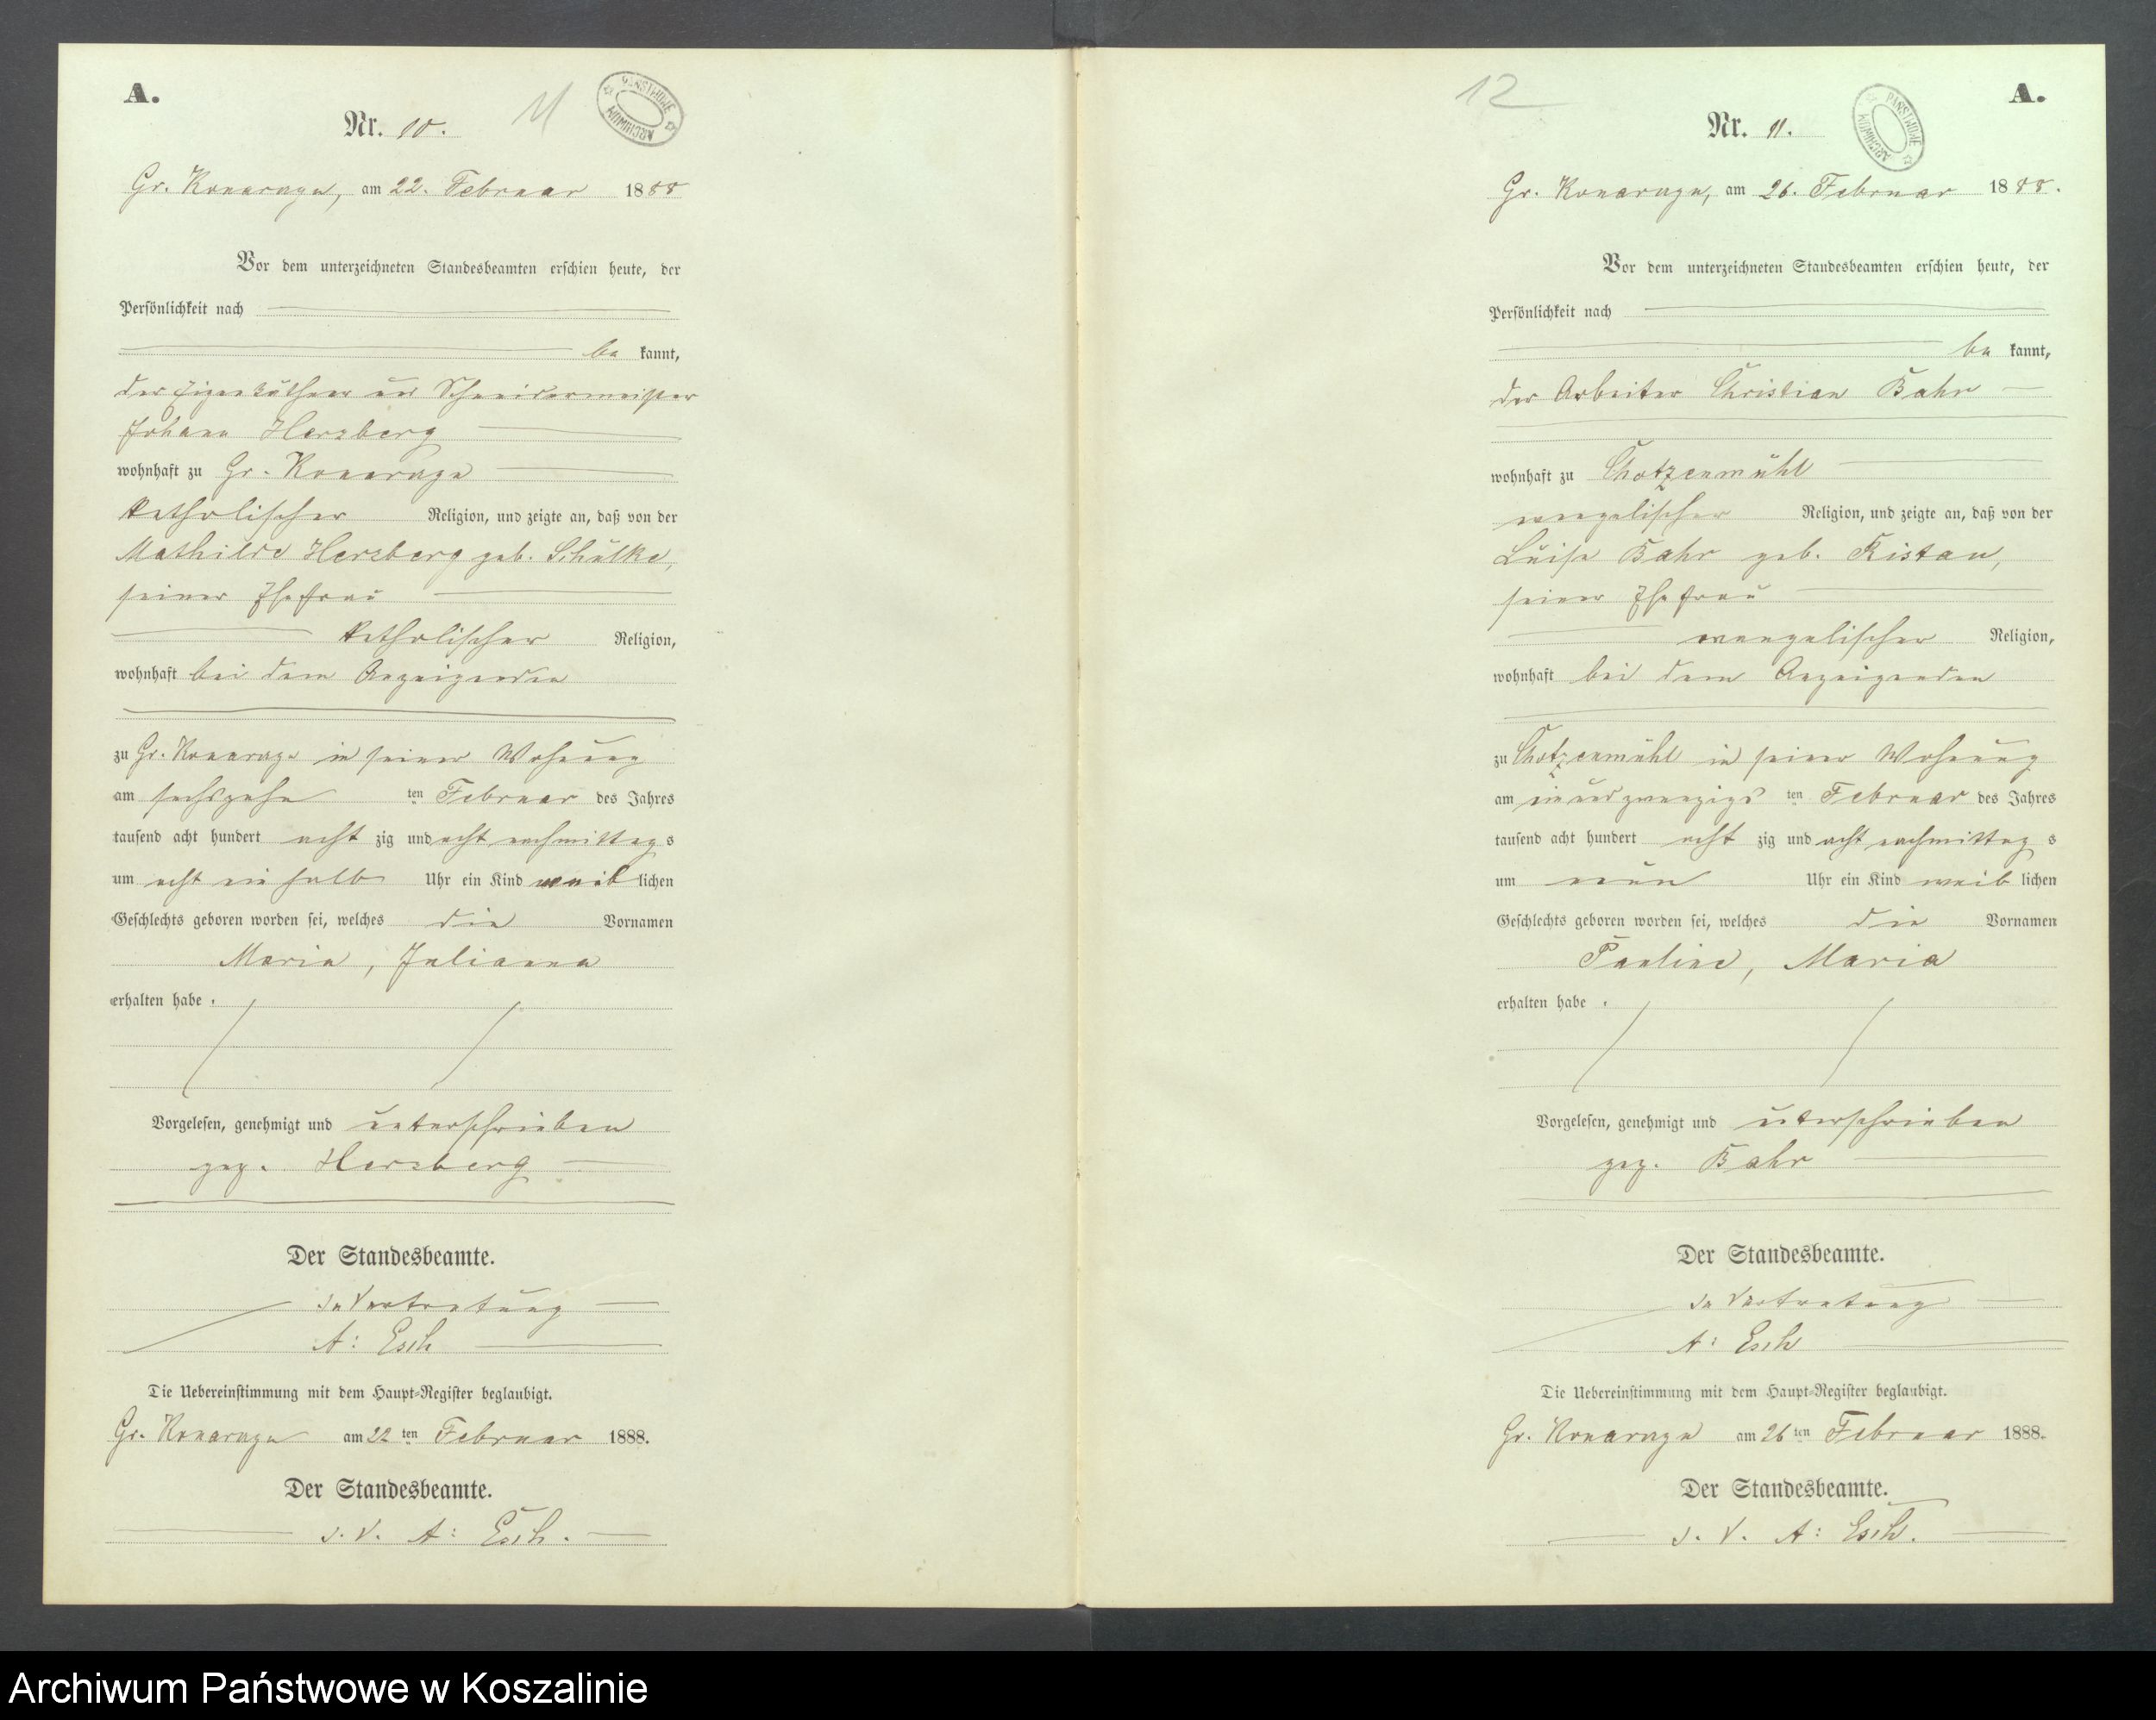 A.
Nr. 10.
11
PAŃSTWOWE ARCHIWUM
Gr. Konarzyn, am 22. Februar 1888
Vor dem unterzeichneten Standesbeamten erschien heute, der
Persönlichkeit nach
be kannt,
der Eigenkäthner und Schneidermeister
Johann Herzberg
wohnhaft zu Gr. Konarzyn
katholischer Religion, und zeigte an, daß von der
Mathilde Herzberg geb. Schülke,
seiner Ehefrau
katholischer Religion,
wohnhaft bei dem Anzeigenden
zu Gr. Konarzyn in seiner Wohnung
am sechszehn ten Februar des Jahres
tausend acht hundert acht zig und acht nachmittag s
um acht ein halb Uhr ein Kind weib lichen
Geschlechts geboren worden sei, welches die Vornamen
Maria, Julianna
erhalten habe.
Vorgelesen, genehmigt und unterschrieben
gez. Herzberg
Der Standesbeamte.
In Vertretung
A: Esch
Die Uebereinstimmung mit dem Haupt-Register beglaubigt.
Gr. Konarzyn am 22 ten Februar 1888.
Der Standesbeamte.
I. V. A: Esch.
12
A.
Nr. 11.
PAŃSTWOWE ARCHIWUM
Gr. Konarzyn, am 26. Februar 1888.
Vor dem unterzeichneten Standesbeamten erschien heute, der
Persönlichkeit nach
be kannt,
der Arbeiter Christian Bahr
wohnhaft zu Chotzenmühl
evangelischer Religion, und zeigte an, daß von der
Luise Bahr geb. Ristau,
seiner Ehefrau
evangelischer Religion,
wohnhaft bei dem Anzeigenden
zu Chotzenmühl in seiner Wohnung
am einundzwanzigs ten Februar des Jahres
tausend acht hundert acht zig und acht nachmittag s
um neun Uhr ein Kind weib lichen
Geschlechts geboren worden sei, welches die Vornamen
Pauline, Maria
erhalten habe.
Vorgelesen, genehmigt und unterschrieben
gez. Bahr
Der Standesbeamte.
In Vertretung
A: Esch
Die Uebereinstimmung mit dem Haupt-Register beglaubigt.
Gr. Konarzyn am 26 ten Februar 1888.
Der Standesbeamte.
I. V. A: Esch.
Archiwum Państwowe w Koszalinie